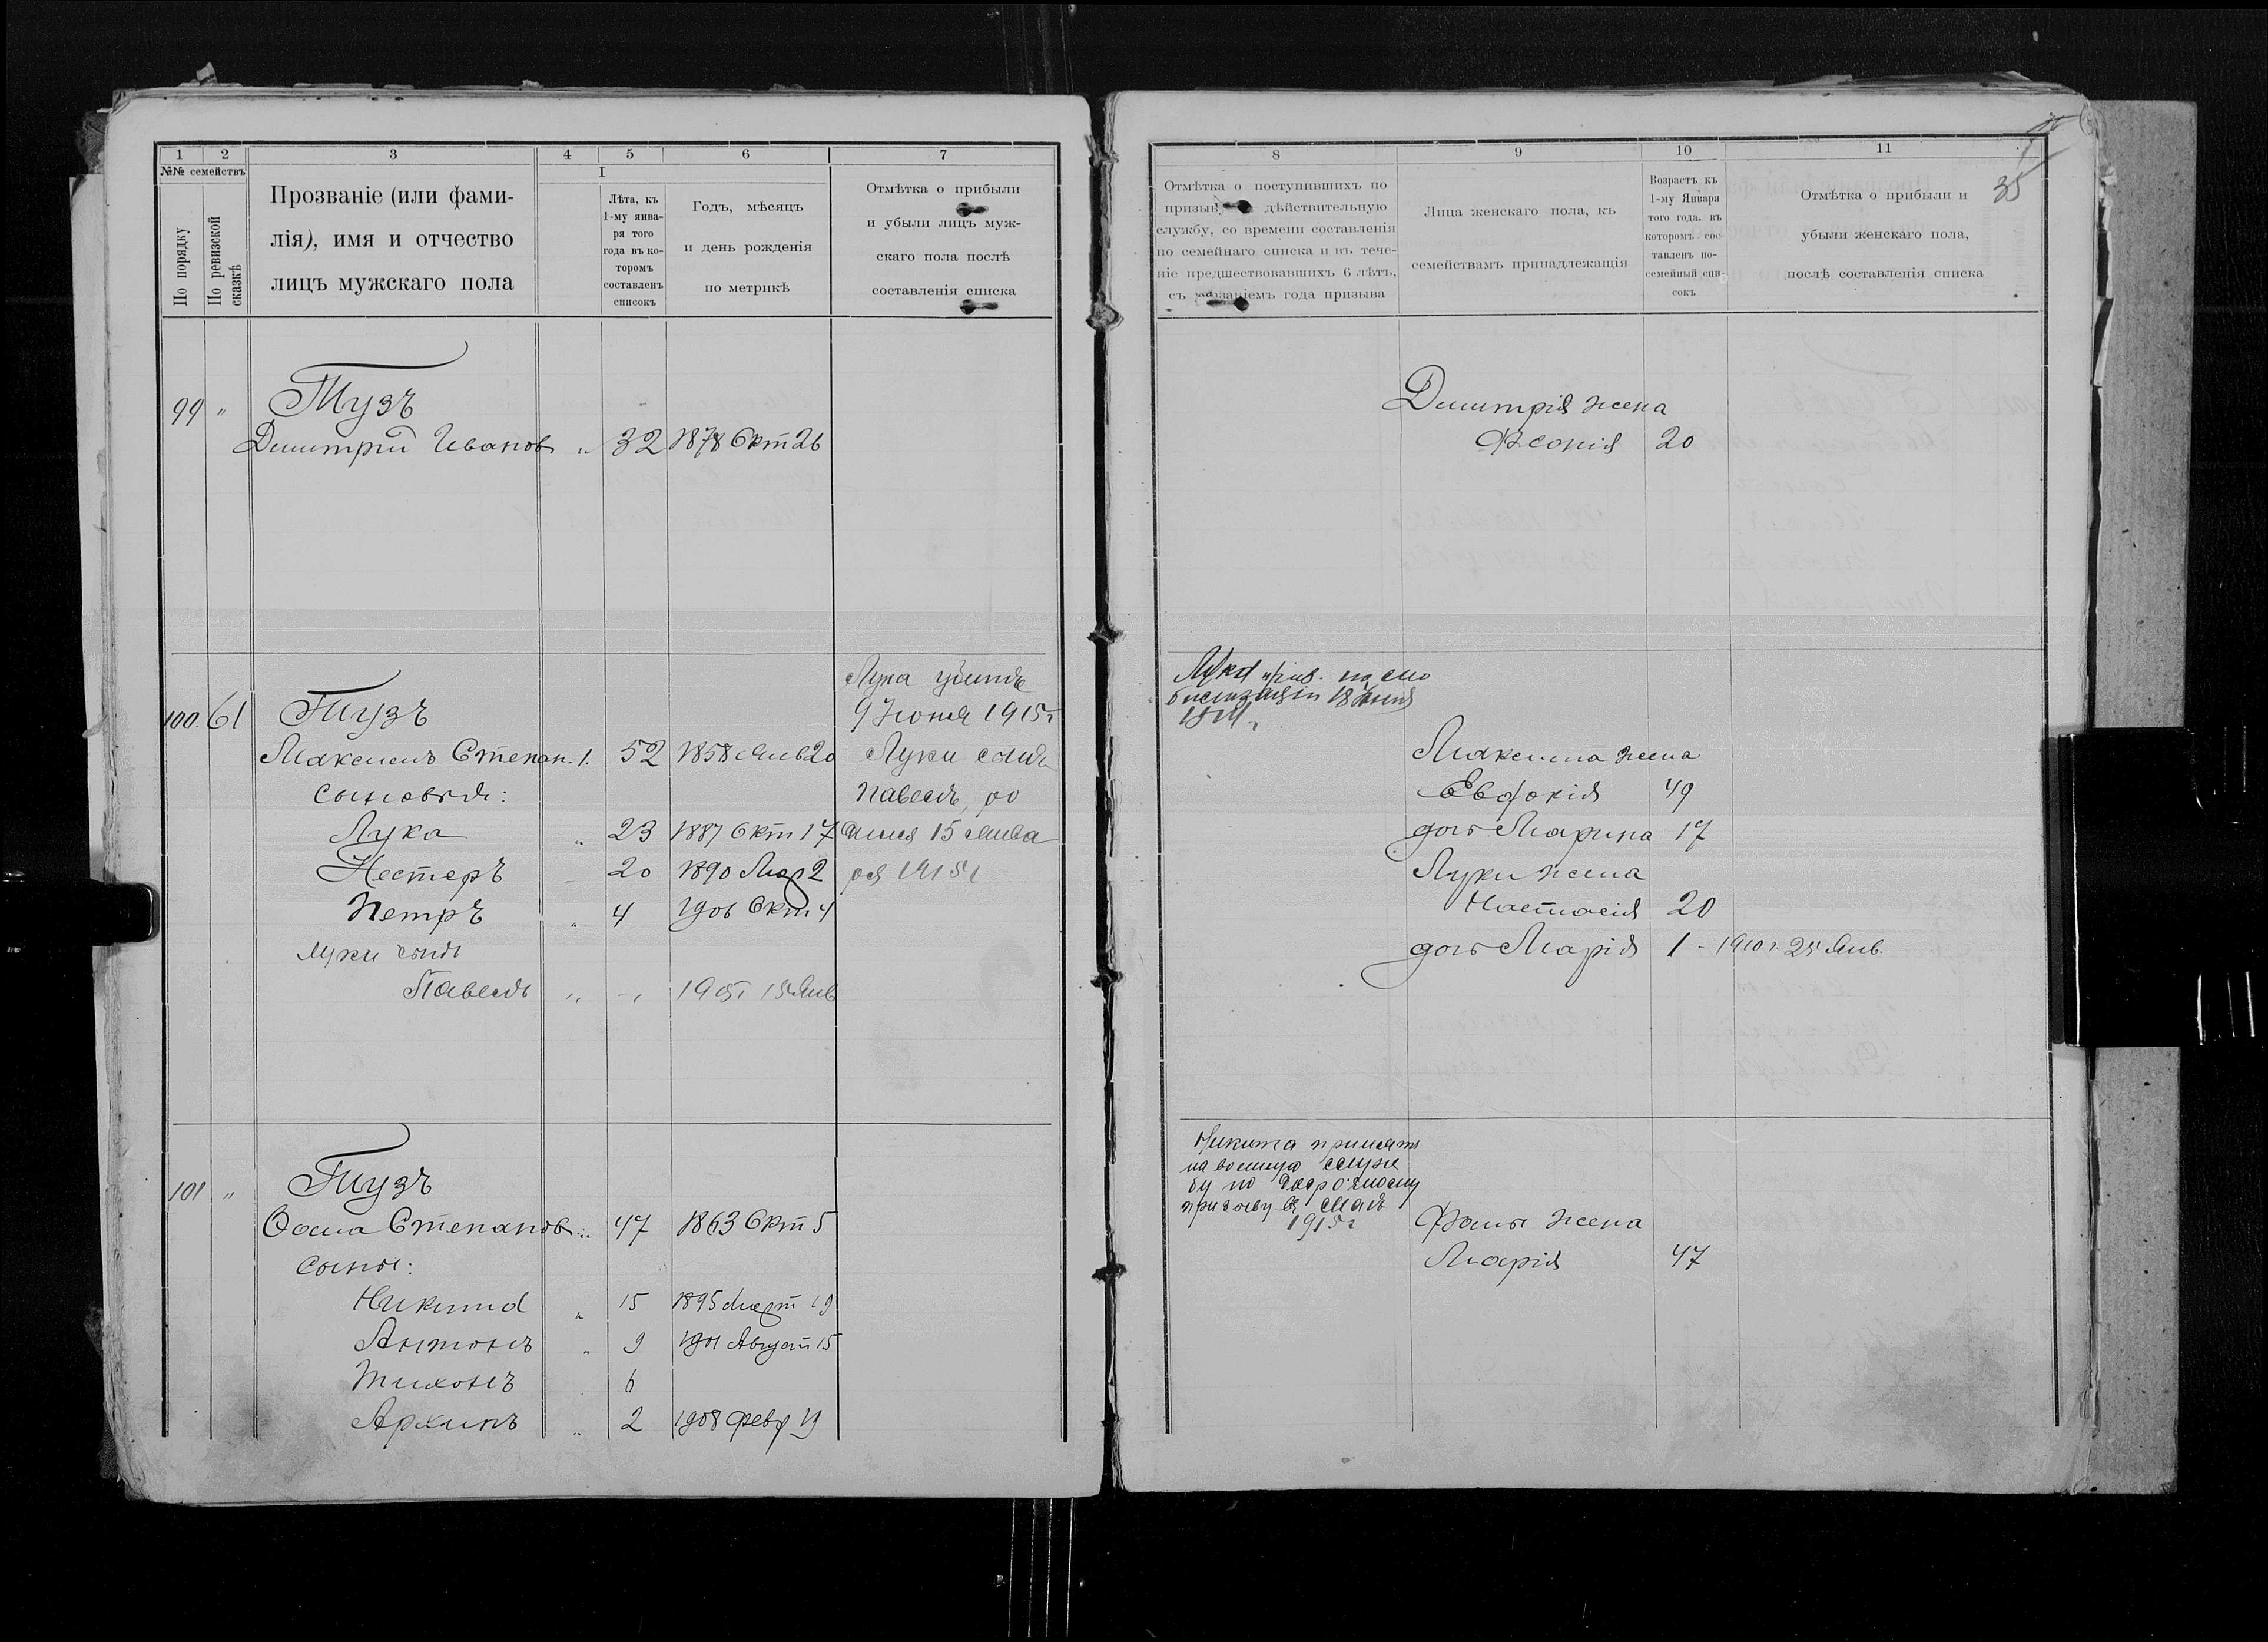 1 2 3 4 5 6 7
№№ семействъ
По порядку
По ревизской сказкѣ
Прозваніе (или фами-
лія), имя и отчество
лицъ мужскаго пола
I
Лѣта, къ
1-му янва-
ря того
года въ ко-
торомъ
составленъ
списокъ
Годъ, мѣсяцъ
и день рожденія
по метрикѣ
Отмѣтка о прибыли
и убыли лицъ муж-
скаго пола послѣ
составленія списка
99 " Тузъ
Дмитрій Иванов " 32 1878 Окт 26
Лука убитъ
100. 61 Тузъ 9 Іюня 1915 г
Максимъ Степан. 1. 52 1858 Янв 20 Луки сынъ
сыновья: Павелъ, ро
Лука " 23 1887 Окт 17 15 Янва
Нестеръ 20 1890 Мар 2 ря 1915 г
Петръ " 4 1906 Окт 4
Луки сынъ
Павелъ " - 1915 г 15 Янв
101 " Тузъ
Ѳома Степанов " 47 1863 Окт 5
Сыны:
Никита " 15 1895 Март 19
Антонъ " 9 1901 Август 15
Тихонъ 6
Архипъ " 2 1908 Февр 19
8 9 10 11
35
Отмѣтка о поступившихъ по
призыву дѣйствительную
службу, со времени составленія
по семейнаго списка и въ тече-
ніе предшествовавшихъ 6 лѣтъ,
съ указаніемъ года призыва
Лица женскаго пола, къ
семействамъ принадлежащія
Возрастъ къ
1-му Января
того года. въ
которомъ сос-
тавленъ по-
семейный спи-
сокъ
Отмѣтка о прибыли и
убыли женскаго пола,
послѣ составленія списка
Дмитрія жена
Ѳеонія 20
Лука по мо
билизаціи 18
1914 г.
Максима жена
Евдокія 49
дочь Марина 17
Луки жена
Настасія 20
дочь Марія 1 - 1910 г. 25 Янв.
Никита принятъ
на военную служ
бу по досрочному
призыву въ маѣ
1915 г
Фомы жена
Марія 47